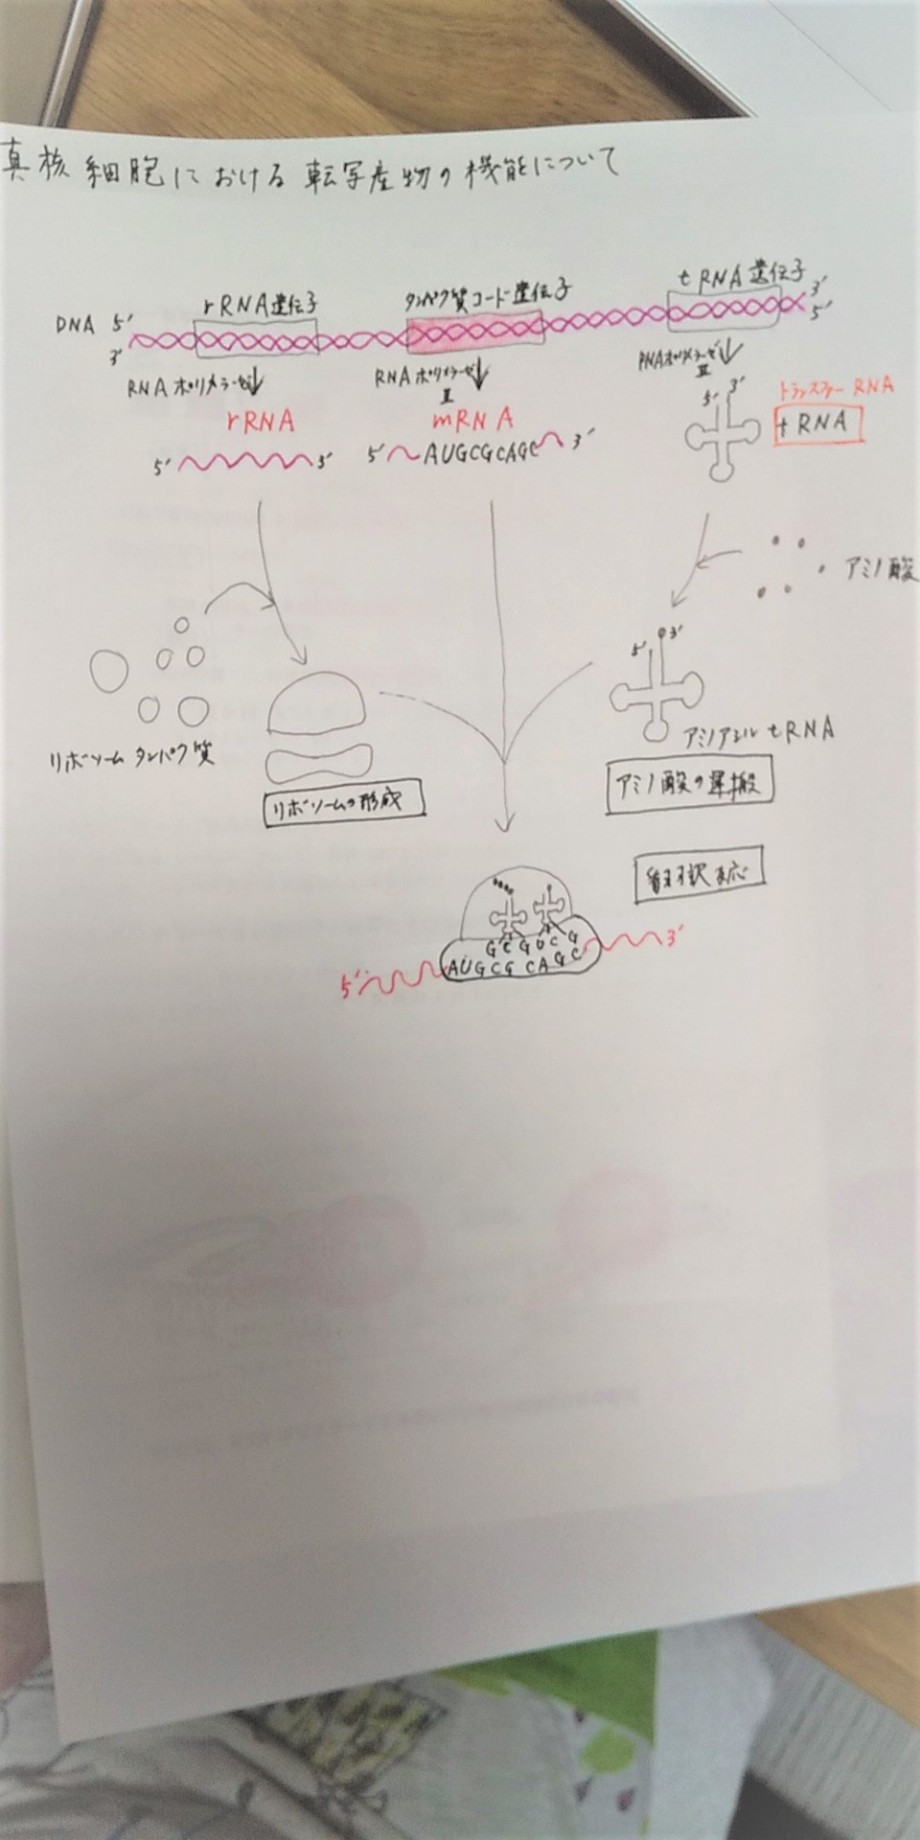 真核細胞における転写産物の機能について
rRNA遺伝子
タンパク質コード遺伝子
tRNA遺伝子
DNA 5′
3′
3′
5′
RNAポリメラーゼI
RNAポリメラーゼ
II
RNAポリメラーゼ
III
rRNA
mRNA
5′ 3′
トランスファーRNA
tRNA
5′ 3′
5′ AUGCGCAGC 3′
アミノ酸
5′ 3′
リボソームタンパク質
アミノアシルtRNA
リボソームの形成
アミノ酸の運搬
翻訳反応
GCGUCG
AUGCGCAGC
5′ 3′